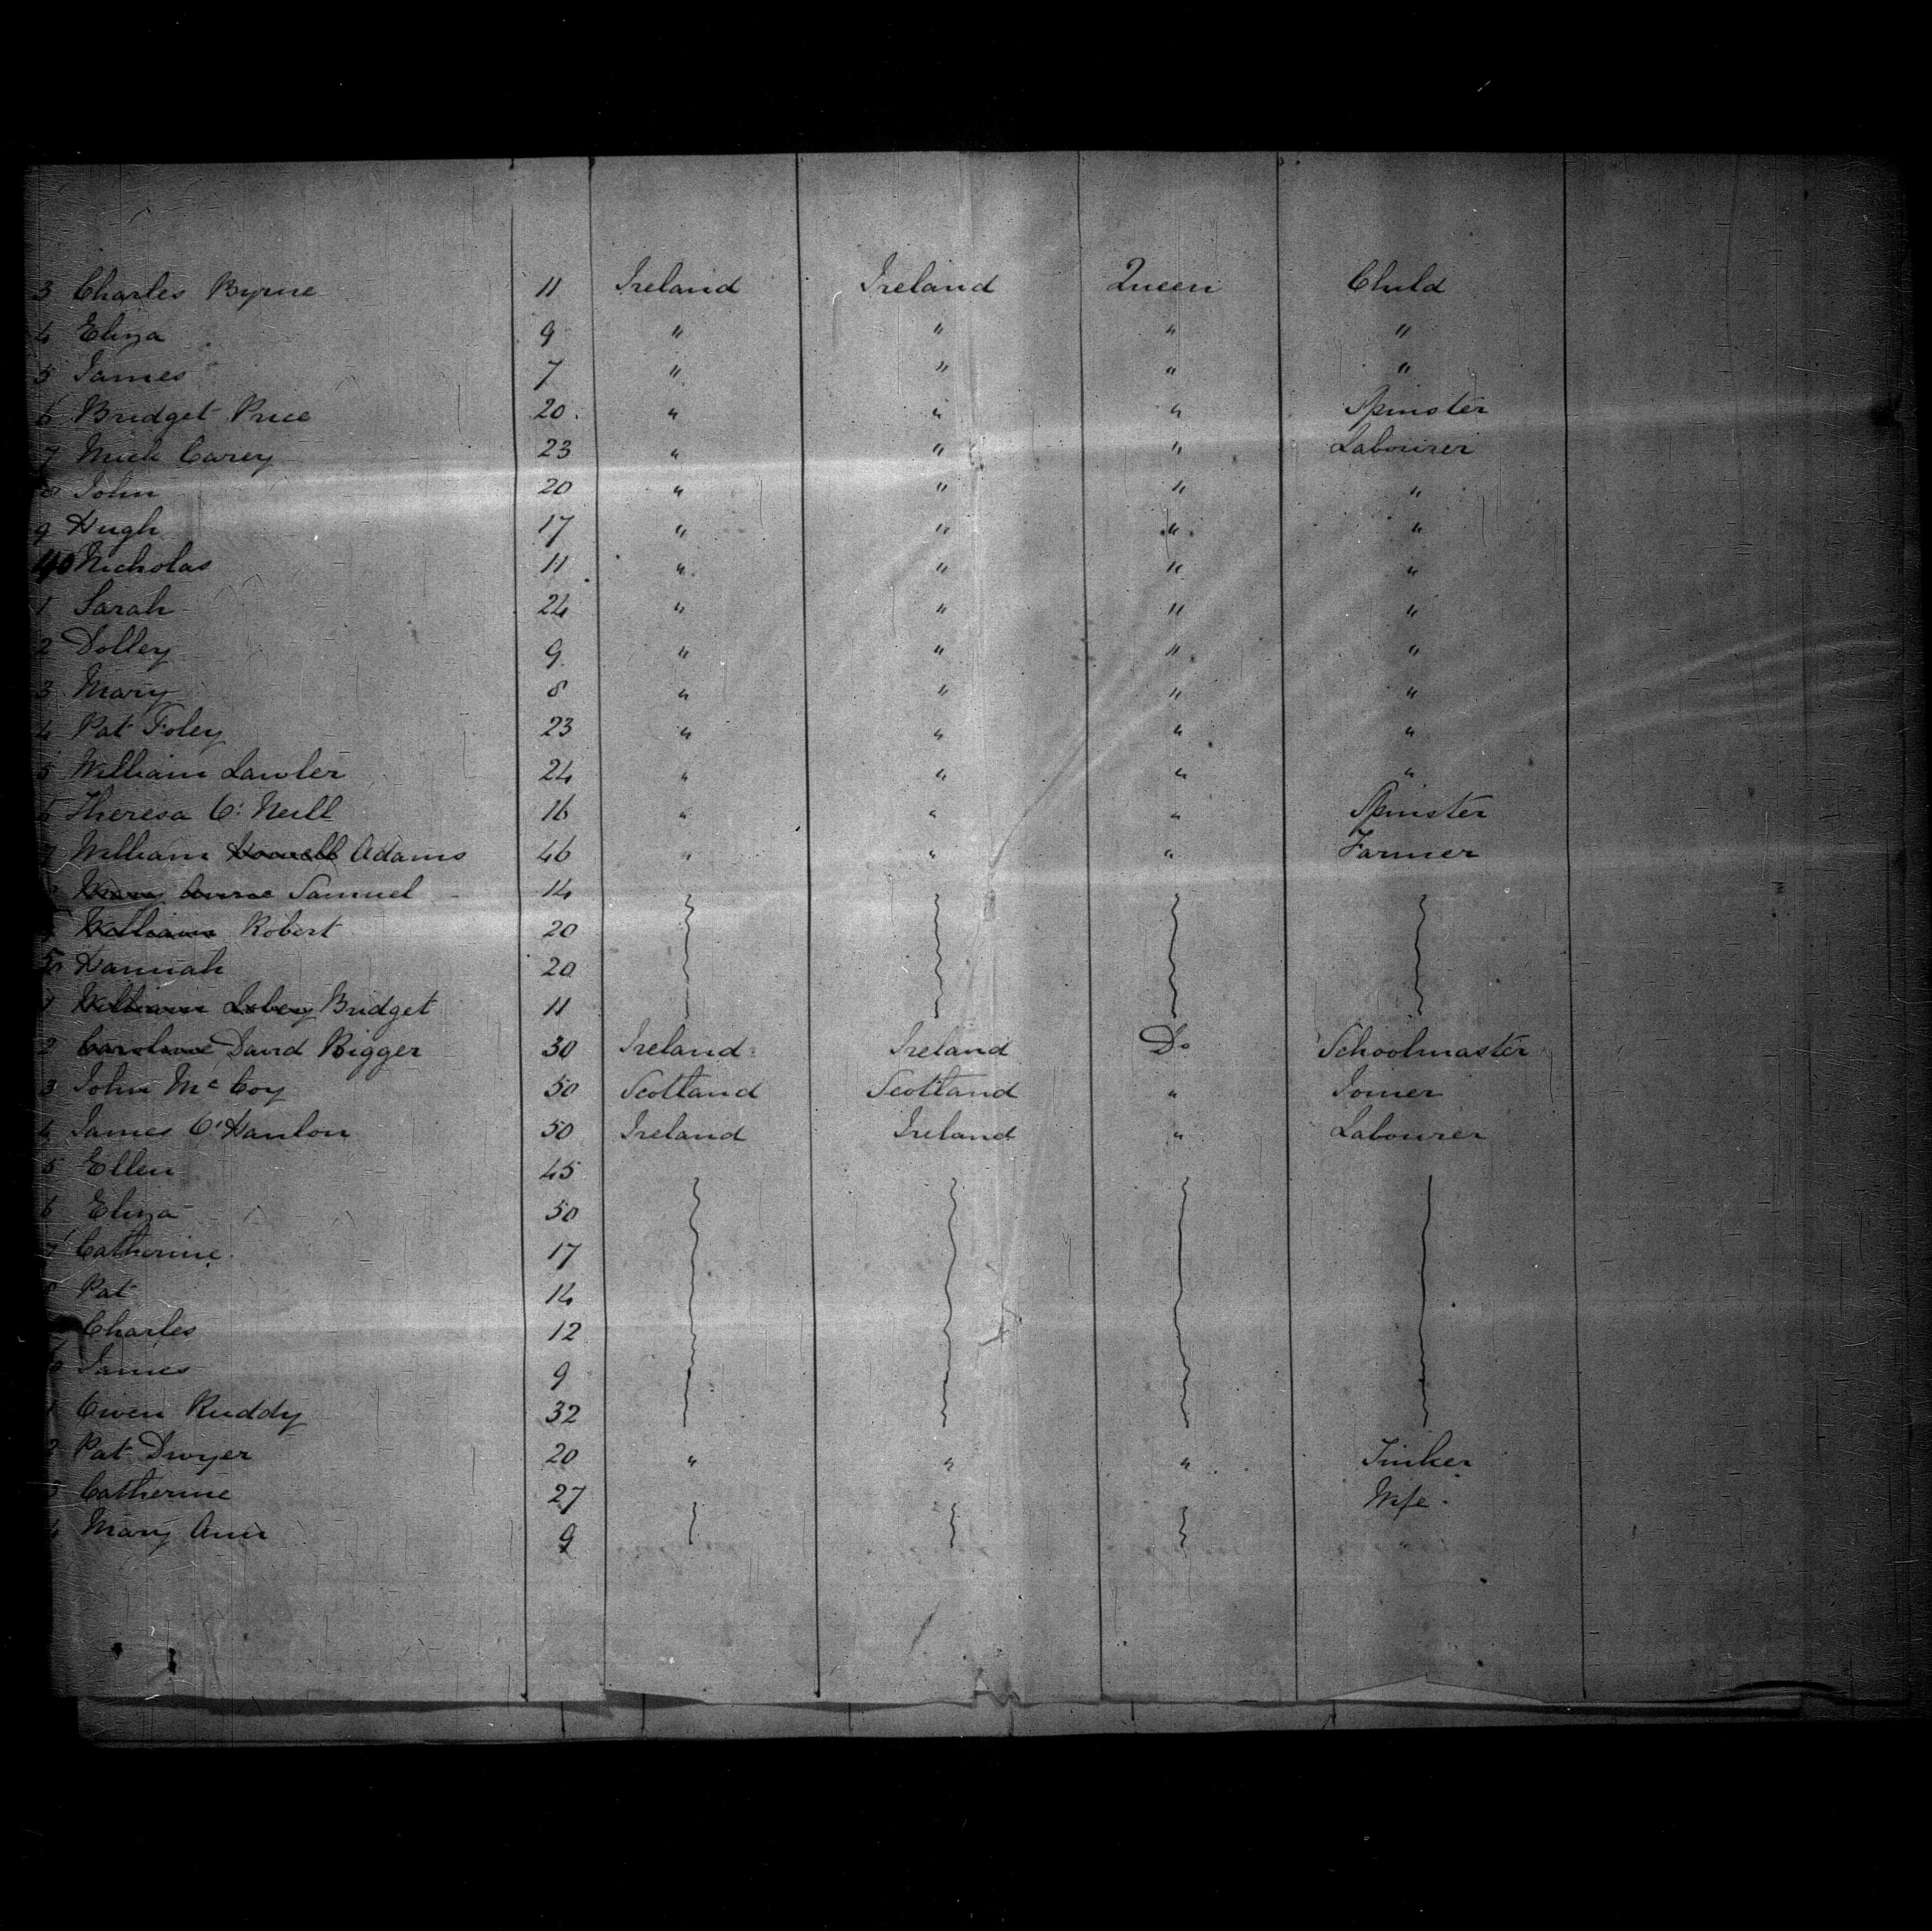 3 Charles Byrne 11 Ireland Ireland Queen Child
4 Eliza 9 " " " "
5 James 7 " " " "
6 Bridget Price 20 " " " Spinster
7 Mick Carey 23 " " " Labourer
8 John 20 " " " "
9 Hugh 17 " " " "
40 Nicholas 11 " " " "
1 Sarah 24 " " " "
2 Dolley 9 " " " "
3 Mary 8 " " " "
4 Pat Foley 23 " " " "
5 William Lawler 24 " " " "
6 Theresa O'Neill 16 " " " Spinster
7 William Adams 46 " " " Farmer
Mary Anne Samuel 14
William Robert 20
50 Hannah 20
1 William Bridget 11
2 Caroline David Bigger 30 Ireland Ireland Do Schoolmaster
3 John McCoy 50 Scotland Scotland " Joiner
4 James O'Hanlon 50 Ireland Ireland " Labourer
5 Ellen 45
6 Eliza 50
7 Catherine 17
8 Pat 14
Charles 12
James 9
1 Owen Ruddy 32
2 Pat Dwyer 20 " " " Tinker
3 Catherine 27 Wife
4 Mary Ann 9